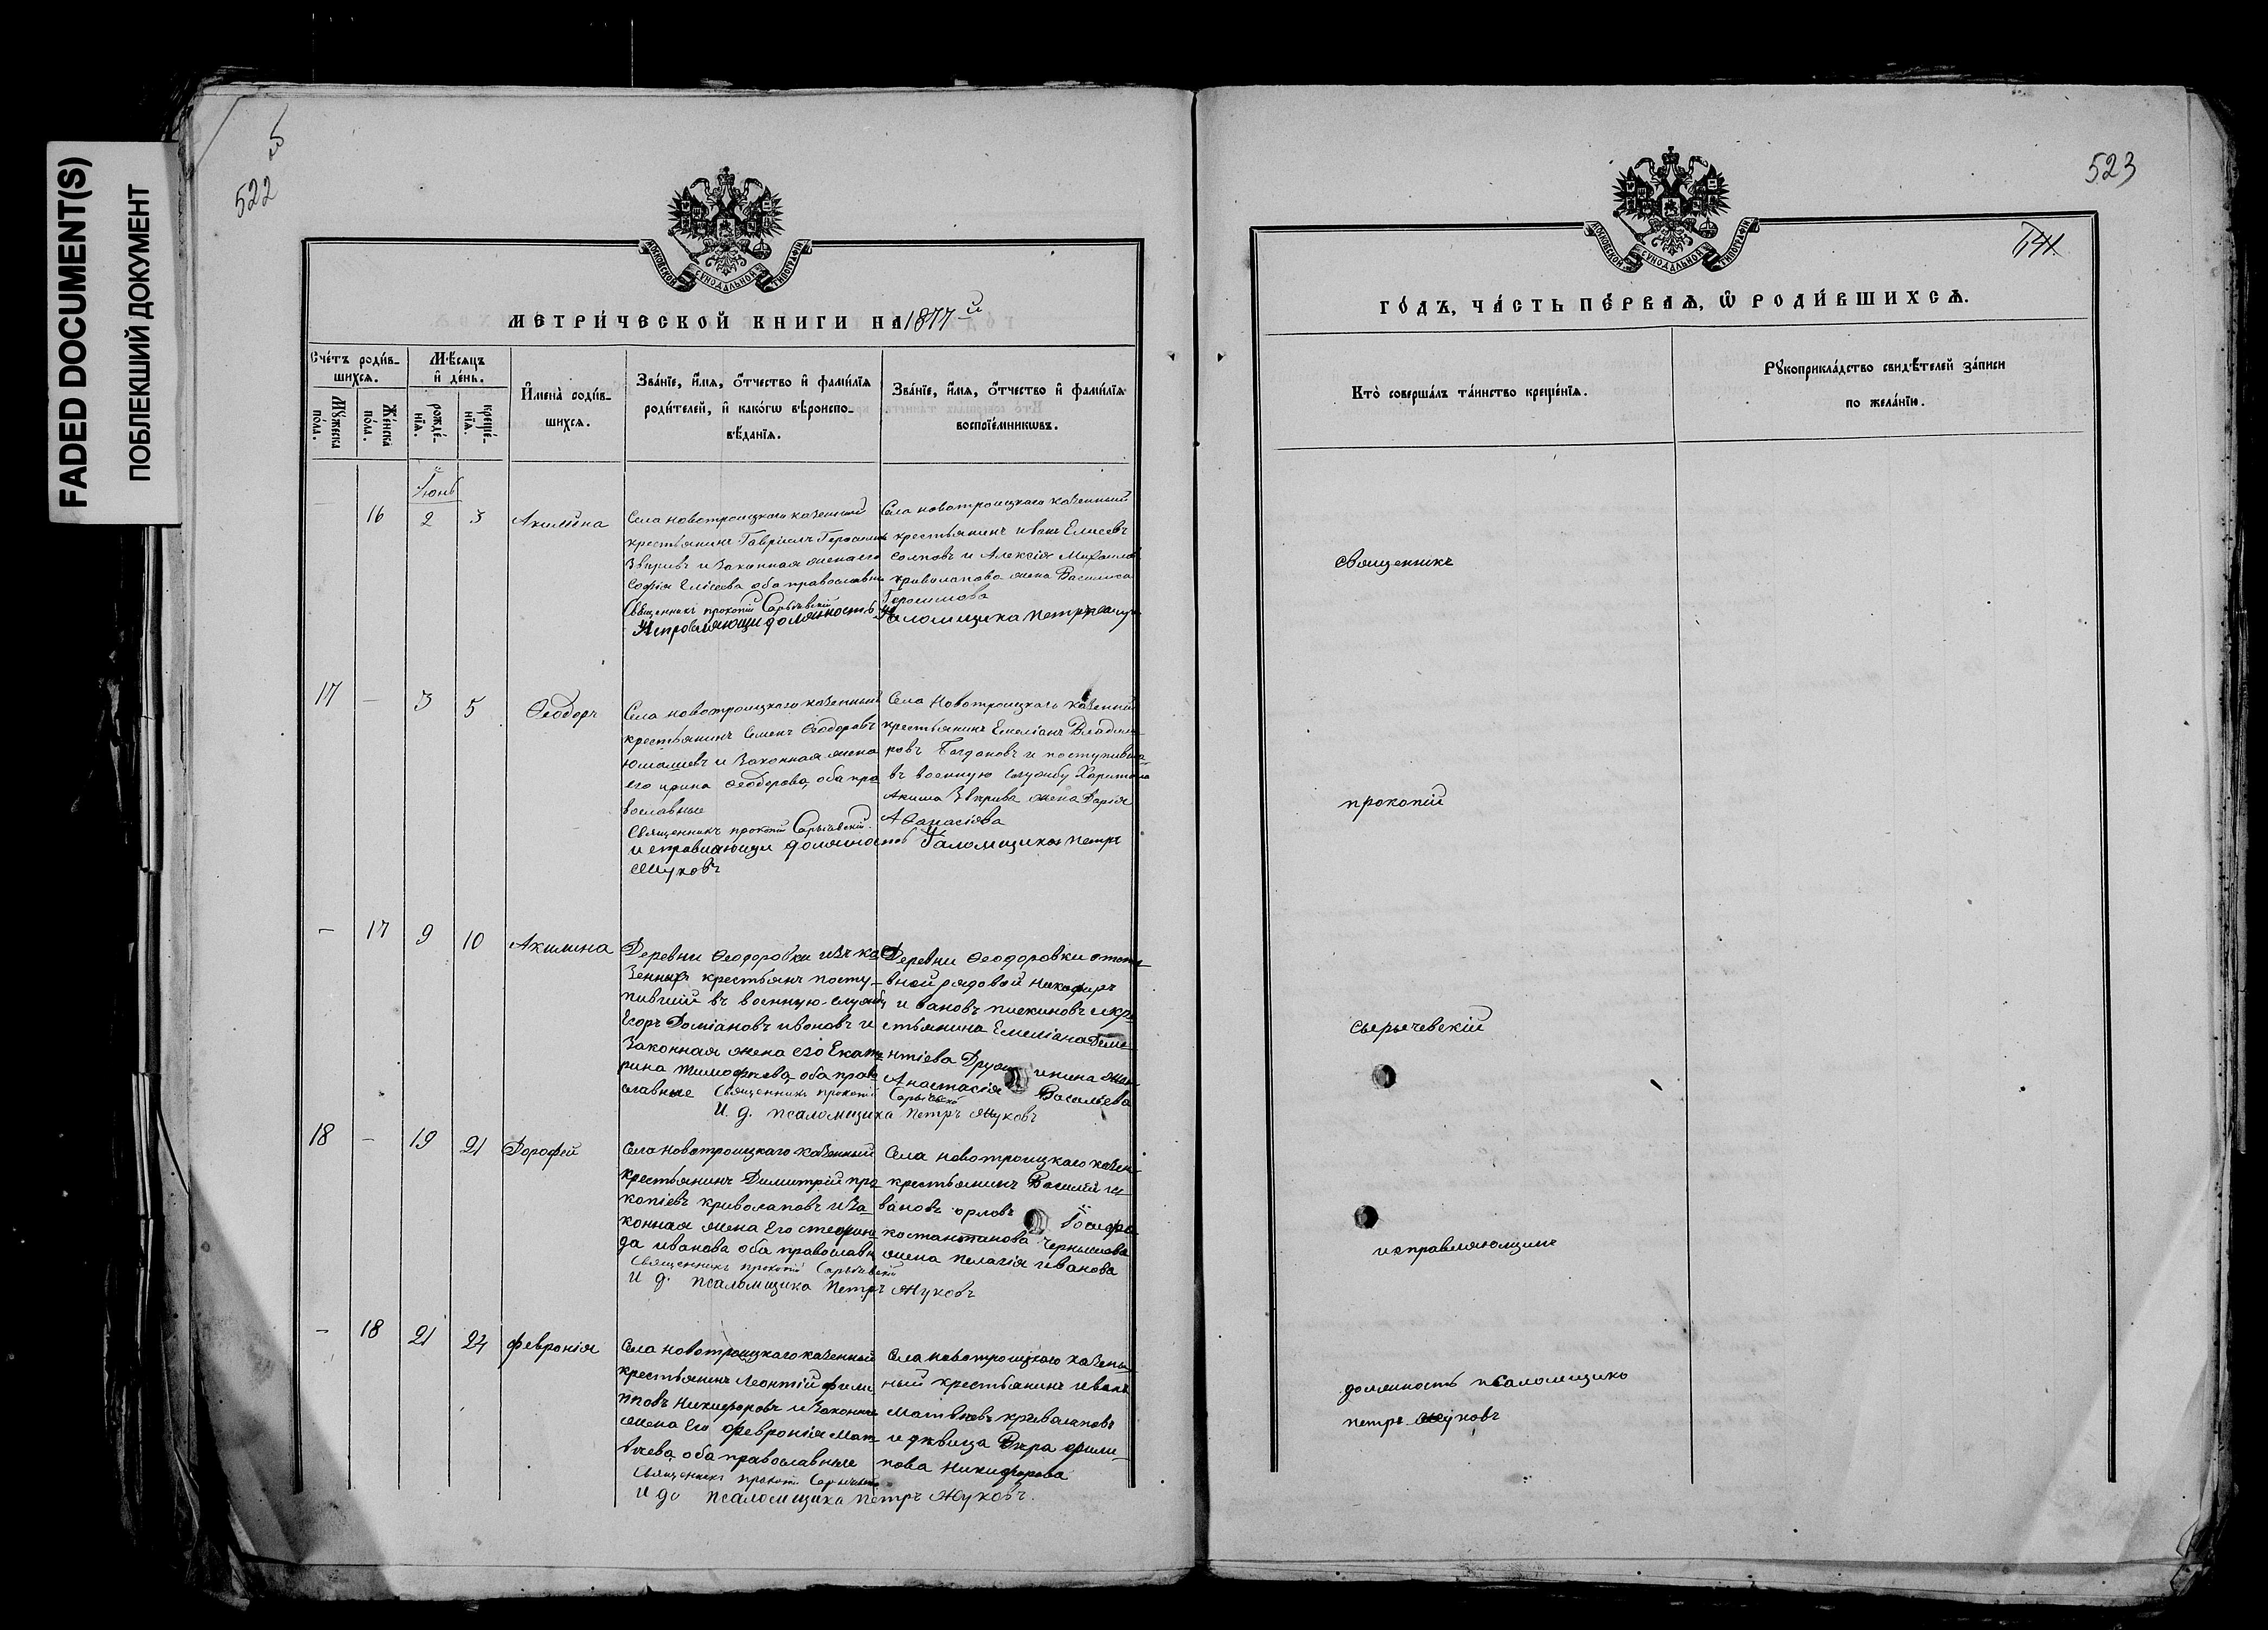 FADED DOCUMENT(S)
ПОБЛЕКШИЙ ДОКУМЕНТ
5
522
МОСКОВСКОЙ СѴНОДАЛЬНОЙ ТИПОГРАФІИ
МЕТРИ́ЧЕСКОЙ КНИГИ НА 1877й
Сче́тъ роди́в-
шихсѧ.
Мѣ́сяцъ
и҆ де́нь.
Мꙋ́жеска
по́ла.
Же́нска
по́ла.
рожде́-
нїѧ.
креще́-
нїѧ.
И҆мена̀ роди́в-
шихсѧ.
Зва́нїе, и҆́мѧ, ѻ҆́тчество и҆ фами́лїѧ
роди́телей, и҆ како́гѡ вѣроиспо-
вѣ́данїѧ.
Зва́нїе, и҆́мѧ, ѻ҆́тчество и҆ фами́лїѧ
воспрїе́мникѡвъ.
Іюнь
16 2 3 Акилина
Села новотроицкаго казенный
крестьянинъ Гавріилъ Герасимъ
Звѣривъ и законная жена его
Софія Елисеева оба православны
Священникъ прокопій Сарычевскій
Исправляющи должность Псаломщика Петръ
Села новотроицкаго казенный
крестьянинъ иванъ Елисеевъ
и Алексія Михаилов
криволапова жена Василиса
Герасимова
17 — 3 5 Ѳеодоръ
Села новотроицкаго казенный
крестьянинъ Семенъ Ѳеодоровъ
Юмашевъ и Законная жена
его ирина Ѳеодорова, оба пра
вославные
Священникъ прокопій Сарычевскій
исправляющи должность Псаломщика Петръ
Жуковъ
Села Новотроицкаго казенный
крестьянинъ Емеліанъ Владими
ровъ Богдановъ и поступивша
въ военную службу Харитона
Акима Звѣрива жена Дарія
Аѳанасіева
— 17 9 10 Акилина
Деревни Ѳеодоровки изъ ка
зенныхъ крестьянъ посту-
пивший въ военную службу
Егоръ Доміановъ ивановъ и
Законная жена его Екате
рина Тимофѣева, оба право
славные Священникъ прокопій Сарычевскій
И. д. псаломщика Петръ Жуковъ
Деревни Ѳеодоровки отста-
вной рядовой Никифоръ
ивановъ и кре
стьянина Емеліана Деме
нтіева
Анастасія Васильева
18 — 19 21 Дорофей
Села Новотроицкаго казенный
крестьянинъ Димитрій про
копіевъ криволаповъ и за-
конная жена Его степани
да иванова оба православн
Священникъ прокопій Сарычевскій
И д. псаломщика Петръ Жуковъ
Села новотроицкаго казен-
крестьянинъ Василій и-
вановъ орловъ Іосифа
костантинова Чернышова
жена пелагія иванова
— 18 21 24 февронія
Села новотроицкаго казенный
крестьянинъ Леонтій фили
пповъ Никифоровъ и Законная
жена Его Февронія Мат-
вѣева, оба православные
Священникъ прокопій Сарычевскій
И до псаломщика петръ Жуковъ.
Села новотроицкаго казен-
ный крестьянинъ иванъ
Матвѣевъ криволаповъ
и дѣвица Вѣра фили-
пова Никифорова
523
МОСКОВСКОЙ СѴНОДАЛЬНОЙ ТИПОГРАФІИ
ГО́ДЪ, ЧА́СТЬ ПЕ́РВАѦ, Ѡ҆ РОДИ́ВШИХСѦ.
Кто̀ соверша́лъ та́инство креще́нїѧ.
Рꙋкоприкла́дство свидѣ́телей за́писи
по жела́нїю.
Священникъ
прокопій
Сырычевскій
исправляющимъ
должность псаломщико
петръ Жуковъ